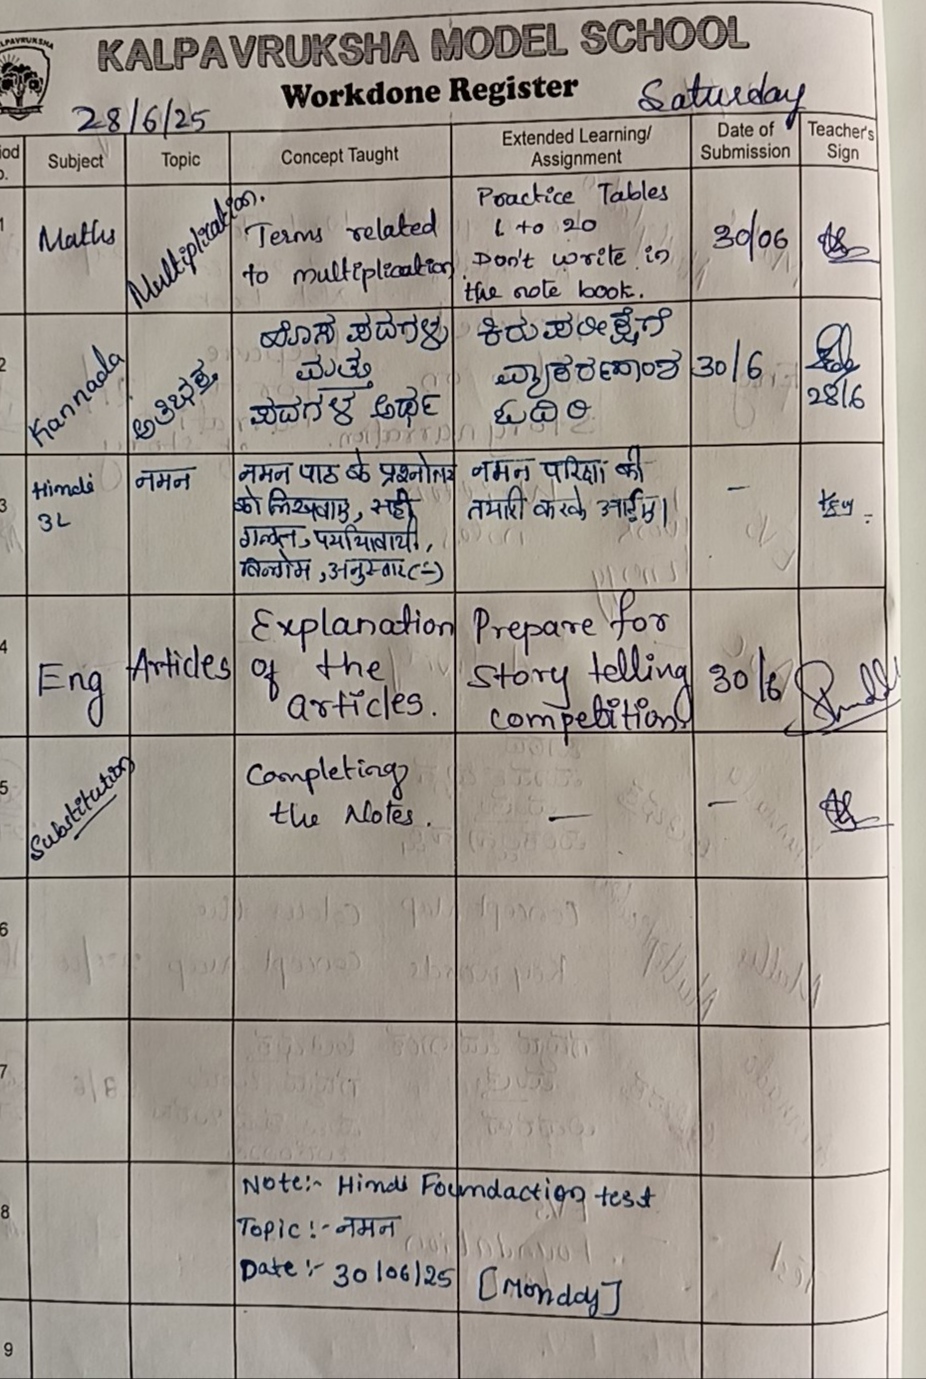 KALPAVRUKSHA MODEL SCHOOL
Workdone Register
28/6/25
Saturday
Subject
Topic
Concept Taught
Extended Learning/
Assignment
Date of
Submission
Teacher's
Sign
1
Maths
Multiplication.
Terms related
to multiplication
Practice Tables
1 to 20
Don't write in
the note book.
30/06
2
Kannada
ಹೊಸ ಪದಗಳು
ಮತ್ತು
ಪದಗಳ ಅರ್ಥ
ಕಿರುಪರೀಕ್ಷೆಗೆ
ವ್ಯಾಕರಣಾಂಶ
ಓದಿರಿ
30/6
28/6
3
Hindi
3L
नमन
नमन पाठ के प्रश्नोत्तर
को लिखवाए, सही
गलत, पर्यायवाची,
विलोम, अनुस्वार
नमन परिक्षा की
तयारी करके आईए।
-
4
Eng
Articles
Explanation
of the
articles.
Prepare for
story telling
competition
30/6
5
Substitution
Completing
the Notes.
-
-
6
7
8
Note:- Hindi Foundaction test
Topic :- नमन
Date :- 30/06/25 [Monday]
9